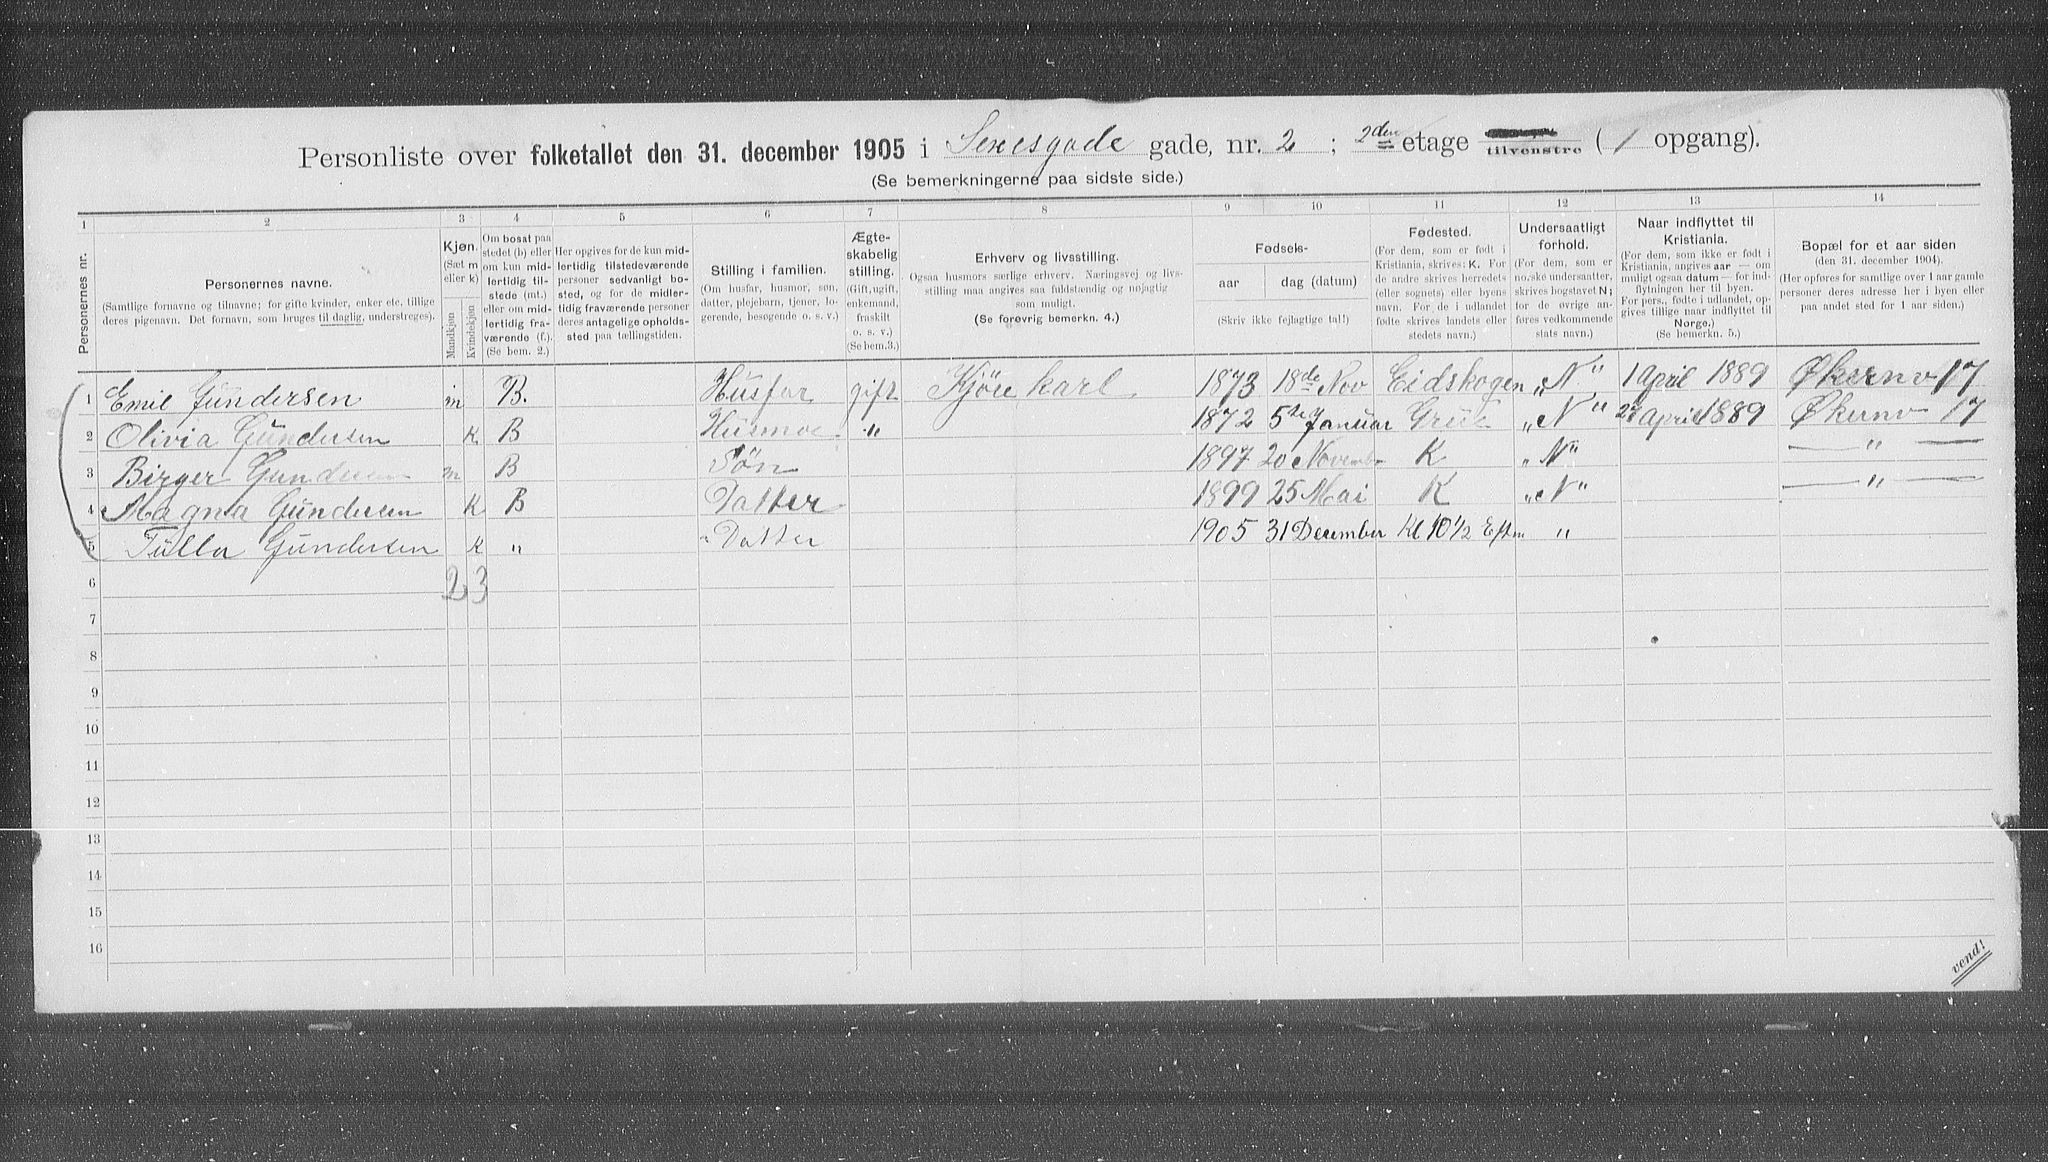 Personliste over folketallet den 31. december 1905 i Sexesgade gade, nr. 2 ; 2den etage tilvenstre ( 1 opgang).
(Se bemerkningerne paa sidste side.)
1 2 3 4 5 6 7 8 9 10 11 12 13 14
Personernes nr.
Personernes navne.
(Samtlige fornavne og tilnavne; for gifte kvinder, enker etc. tillige
deres pigenavn. Det fornavn, som bruges til daglig, understreges).
Kjøn.
(Sæt m
eller k)
Mandkjøn
Kvindekjøn
Om bosat paa
stedet (b) eller
om kun mid-
lertidig til-
stede (mt.)
eller om mid-
lertidig fra-
værende (f.).
(Se bem. 2.)
Her opgives for de kun mid-
lertidig tilstedeværende
personer sedvanlig bo-
sted, og for de midler-
tidig fraværende personer
deres antagelige opholds-
sted paa tællingstiden.
Stilling i familien.
(Om husfar, husmor, søn,
datter, plejebarn, tjener, lo-
gerende, besøgende o. s. v.)
Ægte-
skabelig
stilling.
(Gift, ugift,
enkemand,
fraskilt
o. s. v.)
(Se bem.3.)
Erhverv og livsstilling.
Ogsaa husmors særlige erhverv. Næringsvej og livs-
stilling maa angives saa fuldstændig og nøjagtig
som muligt.
(Se forøvrig bemerkn. 4.)
Fødsels-
aar dag (datum)
(Skriv ikke fejlagtige tal!)
Fødested.
(For dem, som er født i
Kristiania, skrives: K. For
de andre skrives herredets
(eller sognets) eller byens
navn. For de i udlandet
fødte skrives landets eller
stedets navn.)
Undersaatligt
forhold.
(For dem, som er
norske undersaatter,
skrives bogstavet N;
for de øvrige an-
føres vedkommende
stats navn.)
Naar indflyttet til
Kristiania.
(For dem, som ikke er født i
Kristiania, angives aar — om
muligt ogsaa datum — for ind-
flytningen her til byen.
For pers., fødte i udlandet, op-
gives tillige naar indflyttet til
Norge.)
(Se bemerkn. 5.)
Bopæl for et aar siden
(den 31. december 1904).
(Her opføres for samtlige over 1 aar gamle
personer deres adresse her i byen eller
paa andet sted for 1 aar siden.)
1 Emil Gundersen m B. Husfar gift Kjörekarl 1873 18de Nov Eidskogen „N" 1 April 1889 Økernv 17
2 Olivia Gundersen K B Husmoe „ 1872 5te Januar Grue „N" April 1889 Økernv 17
3 Birger Gundersen m B Søn 1897 20 Novemb K „N" — „ —
4 Magna Gundersen K B Datter 1899 25 Mai K „N" — „ —
5 Tulla Gundersen K „ Datter 1905 31 December Kl 10 1/2 Eftm „
6 2 3
7
8
9
10
11
12
13
14
15
16
vend!